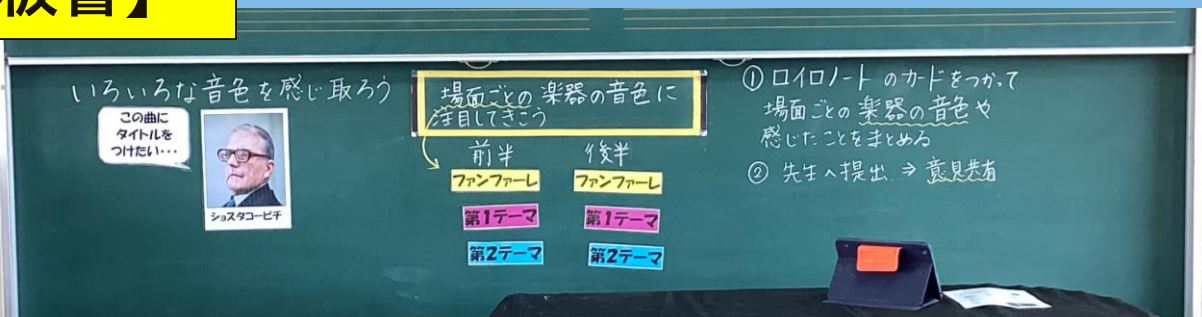 板書】
いろいろな音色を感じ取ろう
この曲に
タイトルを
つけたい・・・
ショスタコービチ
場面ごとの楽器の音色に
注目してきこう
前半
後半
ファンファーレ
ファンファーレ
第1テーマ
第1テーマ
第2テーマ
第2テーマ
① ロイロノートのカードをつかって
場面ごとの楽器の音色や
感じたことをまとめる
② 先生へ提出 ⇒ 意見共有